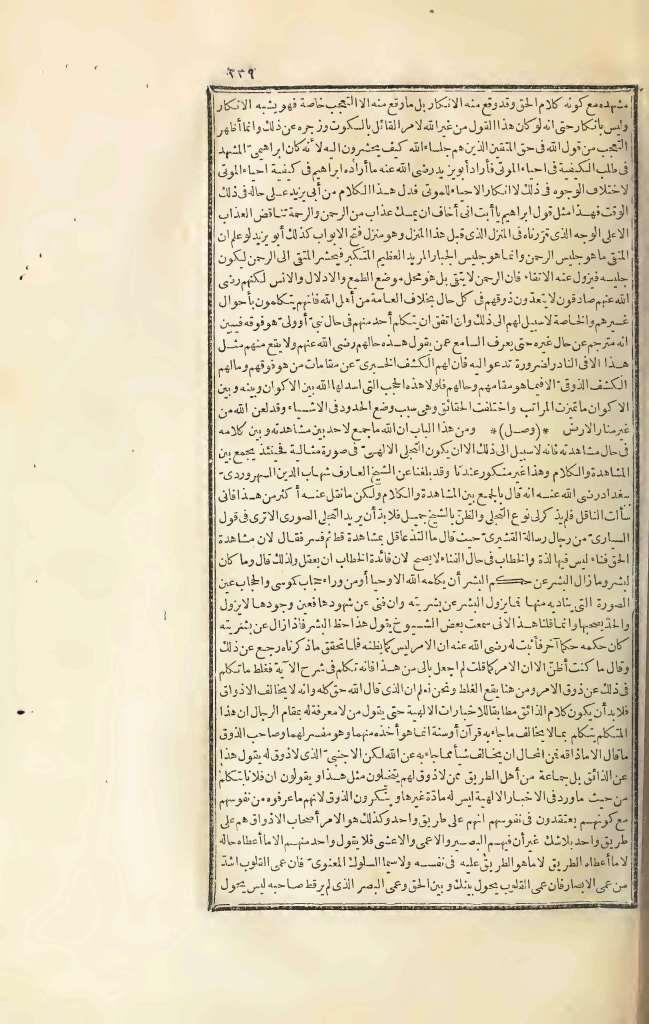 ٣٣٩
مشهده مع كونه كلام الحق وقد وقع منه الانكار بل ما وقع منه الا التعجب خاصة فهو يشبه الانكار
وليس بانكار حتى انه لو كان هذا القول من غير الله لامر القائل بالسكوت وزجره عن ذلك وانما أظهر
التعجب من قول الله فى حق المتقين الذين هم جلساء الله كيف يحشرون اليه لأنه كان ابراهيمى المشهد
فى طلب الكيفية فى احياء الموتى فأراد أبو يزيد رضى الله عنه ما أراده ابراهيم فى كيفية احياء الموتى
لاختلاف الوجوه فى ذلك لا انكار الاحياء للموتى فدل هذا الكلام من أبى يزيد على حاله فى ذلك
الوقت فهذا مثل قول ابراهيم يا أبت انى أخاف ان يمسك عذاب من الرحمن والرحمة تناقض العذاب
الا على الوجه الذى قررناه فى المنزل الذى قبل هذا المنزل وهو منزل فتح الابواب كذلك أبو يزيد لو علم ان
المتقى ما هو جليس الرحمن وانما هو جليس الجبار المريد العظيم المتكبر فيحشر المتقى الى الرحمن ليكون
جليسه فيزول عنه الاتقاء فان الرحمن لا يتقى بل هو محل موضع الطمع والادلال والانس لكنهم رضى
الله عنهم صادقون لا يتعدون ذوقهم فى كل حال بخلاف العامة من أهل الله فانهم يتكلمون بأحوال
غيرهم والخاصة لا سبيل لهم الى ذلك وان اتفق ان يتكلم أحد منهم فى حال نبى أو ولى هو فوقه فيبين
انه مترجم عن حال غيره حتى يعرف السامع عمن يقول هذه حالهم رضى الله عنهم ولا يقع منهم مثل
هذا الا فى النادر لضرورة تدعو اليه فان لهم الكشف الخبرى عن مقامات من هو فوقهم وما لهم
الكشف الذوقى الا فيما هو مقامهم وحالهم فلولا هذه الحجب التى اسدلها الله بين الاكوان وبينه وبين
الاكوان ما تميزت المراتب واختلفت الحقائق وهى سبب وضع الحدود فى الاشياء وقد لعن الله من
غير منار الارض *(وصل)* ومن هذا الباب ان الله ما جمع لاحد بين مشاهدته وبين كلامه
فى حال مشاهدته فانه لا سبيل الى ذلك الا ان يكون التجلى الالهى فى صورة مثالية فحينئذ يجمع بين
المشاهدة والكلام وهذا غير منكور عندنا وقد بلغنا عن الشيخ العارف شهاب الدين السهروردى
ببغداد رضى الله عنه انه قال بالجمع بين المشاهدة والكلام ولكن ما نقل عنه أكثر من هذا فانى
سألت الناقل فلم يذكر لى نوع التجلى والظن بالشيخ جميل فلا بد أن يريد التجلى الصورى الا ترى فى قول
السيارى من رجال رسالة القشيرى حيث قال ما التذ عاقل بمشاهدة قط ثم فسر فقال لان مشاهدة
الحق فناء ليس فيها لذة والخطاب فى حال الفناء لا يصح لان فائدة الخطاب ان يعقل ولذلك قال وما كان
لبشر وما زال البشر عن حكم البشر أن يكلمه الله الا وحيا أو من وراء حجاب كموسى والحجاب عين
الصورة التى يناديه منها فما يزول البشر عن بشريته وان فنى عن شهودها فعين وجودها لا يزول
والحد يصحبها وانما قلنا هذا لانى سمعت بعض الشيوخ يقول هذا حظ البشر فاذا زال عن بشريته
كان حكمه حكما آخر فأبنت له رضى الله عنه ان الامر ليس كما يظنه فلما تحقق ما ذكرناه رجع عن ذلك
وقال ما كنت أظن الا ان الامر كما قلت لم اجعل بالى من هذا فانه تكلم فى شرح الآية فغلط ما تكلم
فى ذلك عن ذوق الامر ومن هنا يقع الغلط ونحن نعلم ان الذى قال الله حق كله وانه لا يخالف الاذواق
فلا بد أن يكون كلام الذائق مطابقا للاخبارات الالهية حتى يقول من لا معرفة له بمقام الرجال ان هذا
المتكلم يتكلم بما لا يخالف ما جاء به قرآن أو سنة انما هو أخذه منهما وهو مفسر لهما وصاحب الذوق
ما قال الا ما ذاقه فمن المحال ان يخالف شيأ مما جاء به عن الله لكن الاجنبى الذى لا ذوق له يقول هذا
عن الذائق بل جماعة من أهل الطريق ممن لا ذوق لهم يتخيلون مثل هذا ويقولون ان فلانا يتكلم
من حيث ما ورد فى الاخبار الالهية ليس له مادة غيرها وينكرون الذوق لانهم ما عرفوه من نفوسهم
مع كونهم يعتقدون فى نفوسهم انهم على طريق واحد وكذلك هو الامر أصحاب الاذواق هم على
طريق واحد بلا شك غير أن فيهم البصير والاعمى والاعشى فلا يقول واحد منهم الا ما أعطاه حاله
لا ما أعطاه الطريق لا ما هو الطريق عليه فى نفسه ولا سيما السلوك المعنوى فان عمى القلوب اشد
من عمى الابصار فان عمى القلوب يحول بينك وبين الحق وعمى البصر الذى لم ير قط صاحبه ليس يحول